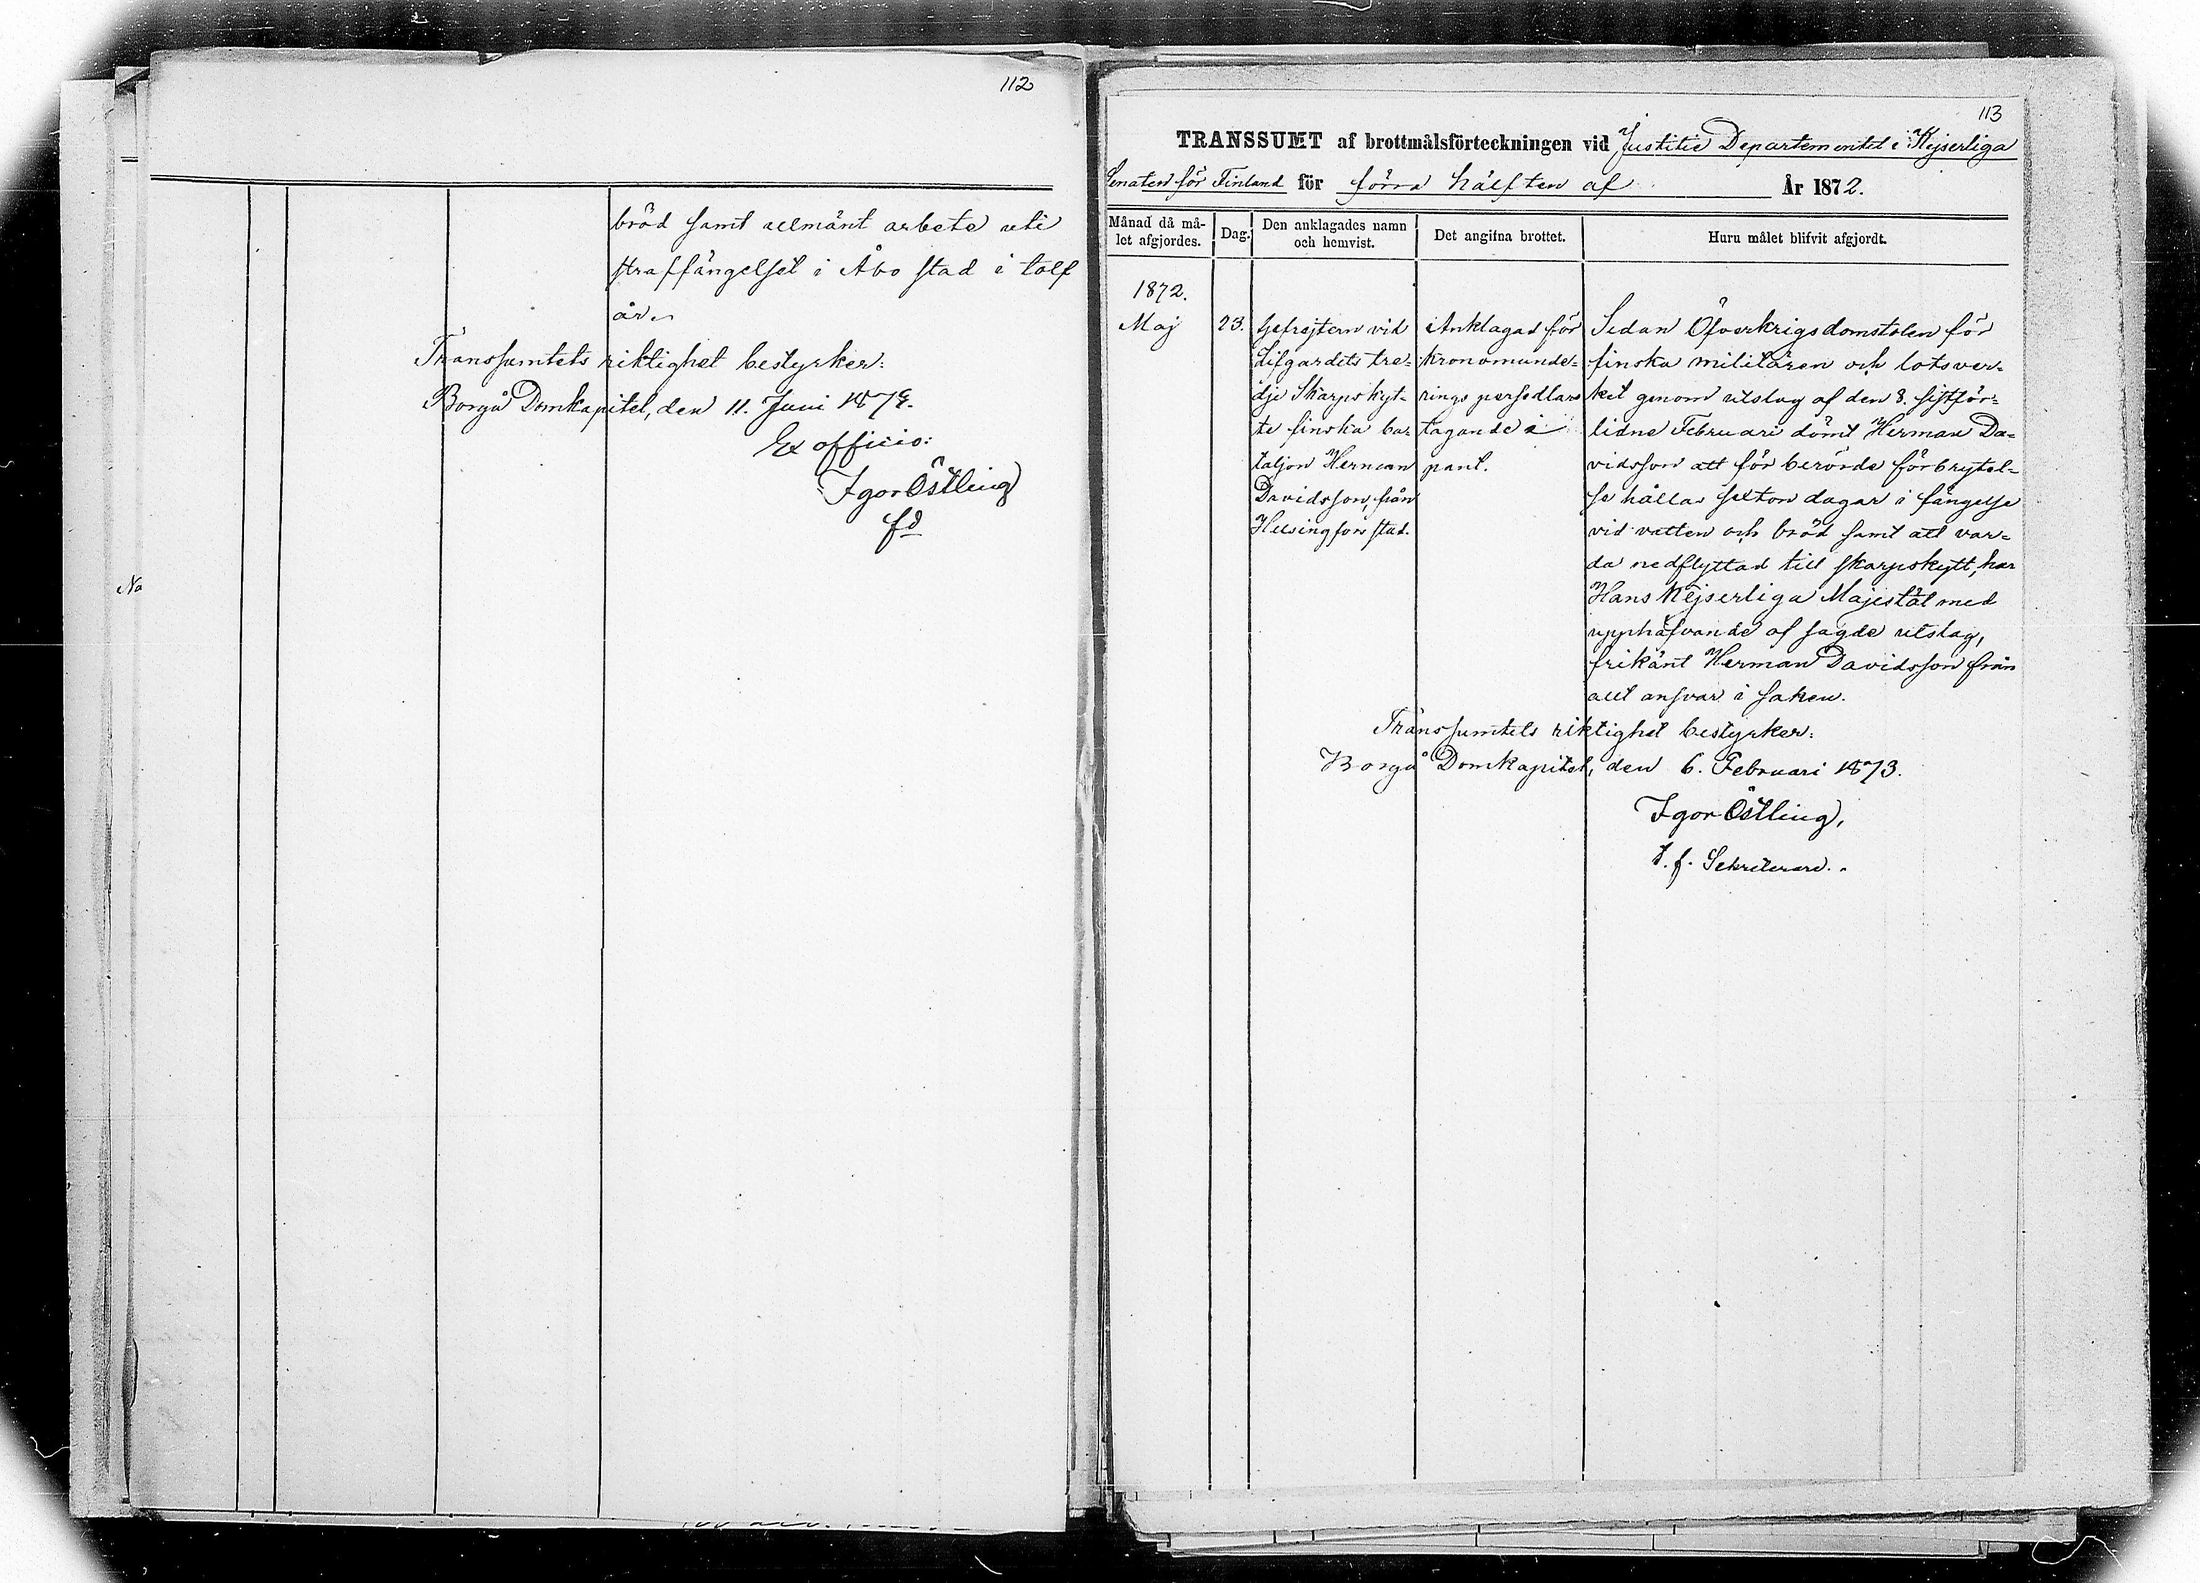 112
bröd samt allmänt arbete uti
straffängelset i Åbo stad i tolf
år.
Transsumtets riktighet bestyrker:
Borgå Domkapitel, den 11. Juni
Ex officio:
Igor Östling
No
113
TRANSSUMT af brottmålsförteckningen vid Justitie Departementet i Kejserliga
Senaten för Finland för förra hälften af År 1872.
Månad då må-
let afgjordes.
Dag.
Den anklagades namn
och hemvist.
Det angifna brottet.
Huru målet blifvit afgjordt.
1872.
Maj
23.
Gefrejtern vid
Lifgardets tre-
dje Skarpskyt-
te finska ba-
taljon Herman
Davidsson, från
Helsingfors stad.
Anklagad för
kronomunde-
rings persedlars
tagande i
pant.
Sedan Öfverkrigsdomstolen för
finska militären och lotsver-
ket genom utslag af den 8. sistför-
lidne Februari dömt Herman Da-
vidsson att för berörde förbrytel-
se hållas sexton dagar i fängelse
vid vatten och bröd samt att var-
da nedflyttad till skarpskytt, har
Hans Kejserliga Majestät med
upphäfvande af sagde utslag,
frikänt Herman Davidsson från
allt ansvar i saken.
Transsumtets riktighet bestyrker:
Borgå Domkapitel, den 6. Februari 1873.
Igor Östling,
t. f. Sekreterare.